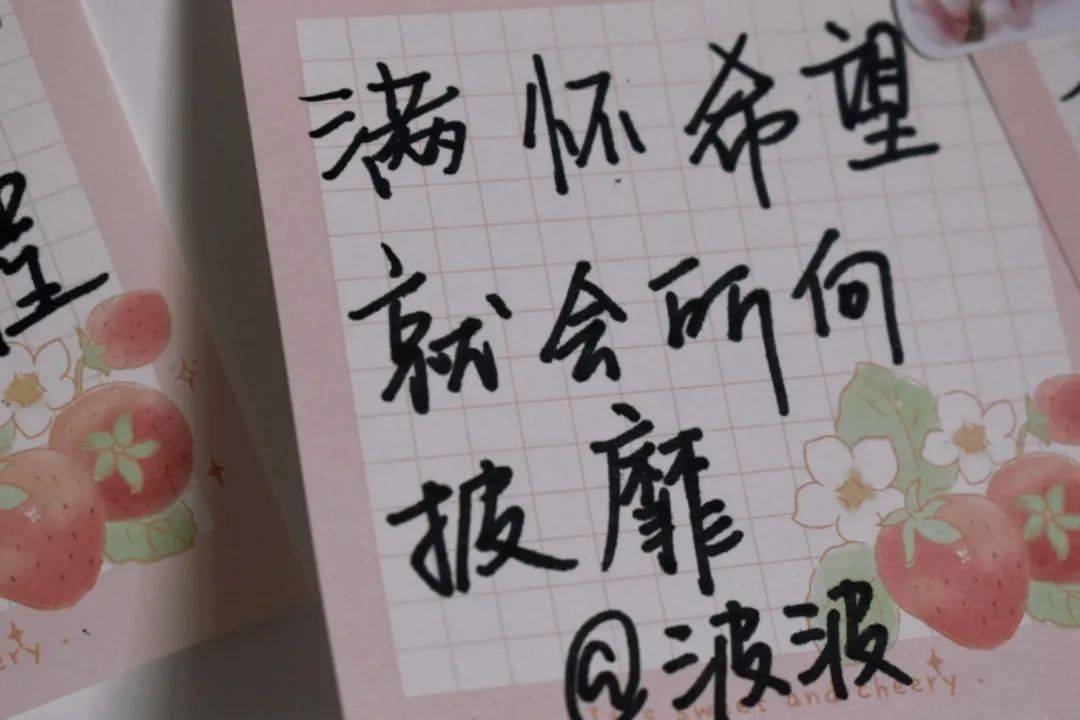 满怀希望
就会所向
披靡
@波波
sweet and cheery.